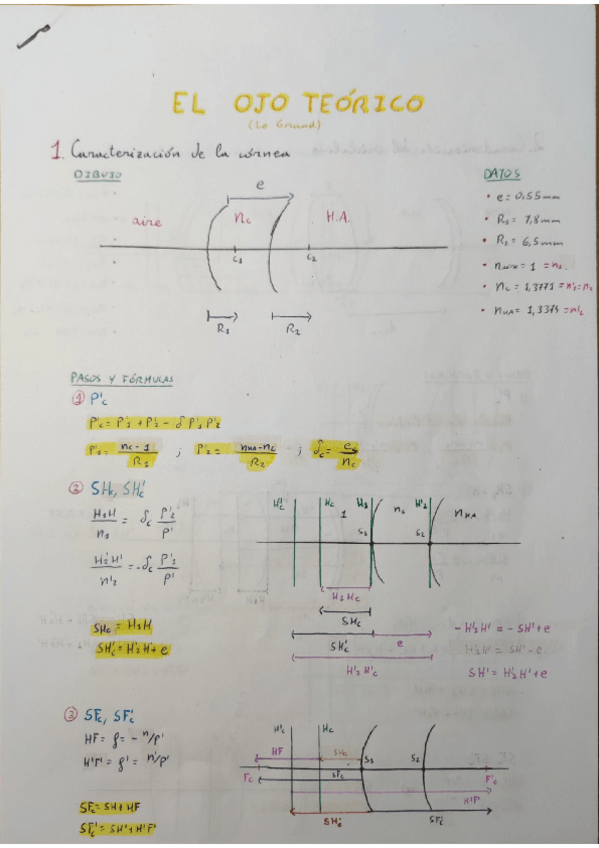 EL OJO TEÓRICO
(Le Grand)
1. Caracterización de la córnea
DIBUJO
DATOS
e
aire
nc
H.A.
C1
C2
R1
R2
• e = 0,55mm
• R1 = 7,8mm
• R2 = 6,5mm
• naire = 1 = n1
• nc = 1,3771 = n'1 = n2
• nHA = 1,3374 = n'2
PASOS Y FÓRMULAS
① P'c
P'c = P'1 + P'2 - δ P'1 P'2
P'1 = nc - 1 / R1 ; P'2 = nHA - nc / R2 ; δc = e / nc
② SHc, SH'c
H1H / n1 = δc P'2 / P'
H'2H' / n'2 = -δc P'1 / P'
SHc = H1H
SH'c = H'2H + e
H'c
Hc
H1
H'2
1
nc
nHA
S1
S2
H1Hc
SHc
SH'c
e
H'2H'c
-H'2H' = -SH' + e
H'2H' = SH' - e
SH' = H'2H' + e
③ SFc, SF'c
HF = f = - n/P'
H'F' = f' = n'/P'
SFc = SH + HF
SF'c = SH' + H'F'
H'c
Hc
HF
SHc
S1
S2
Fc
SFc
F'c
H'F'
SH'c
SF'c